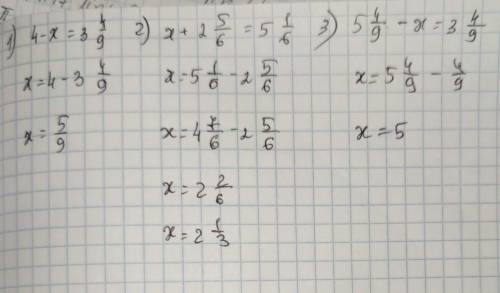 1) 4-x=3 4/9
x=4-3 4/9
x=5/9
2) x+2 5/6=5 1/6
x=5 1/6-2 5/6
x=4 7/6-2 5/6
x=2 2/6
x=2 1/3
3) 5 4/9-x=3 4/9
x=5 4/9-4/9
x=5